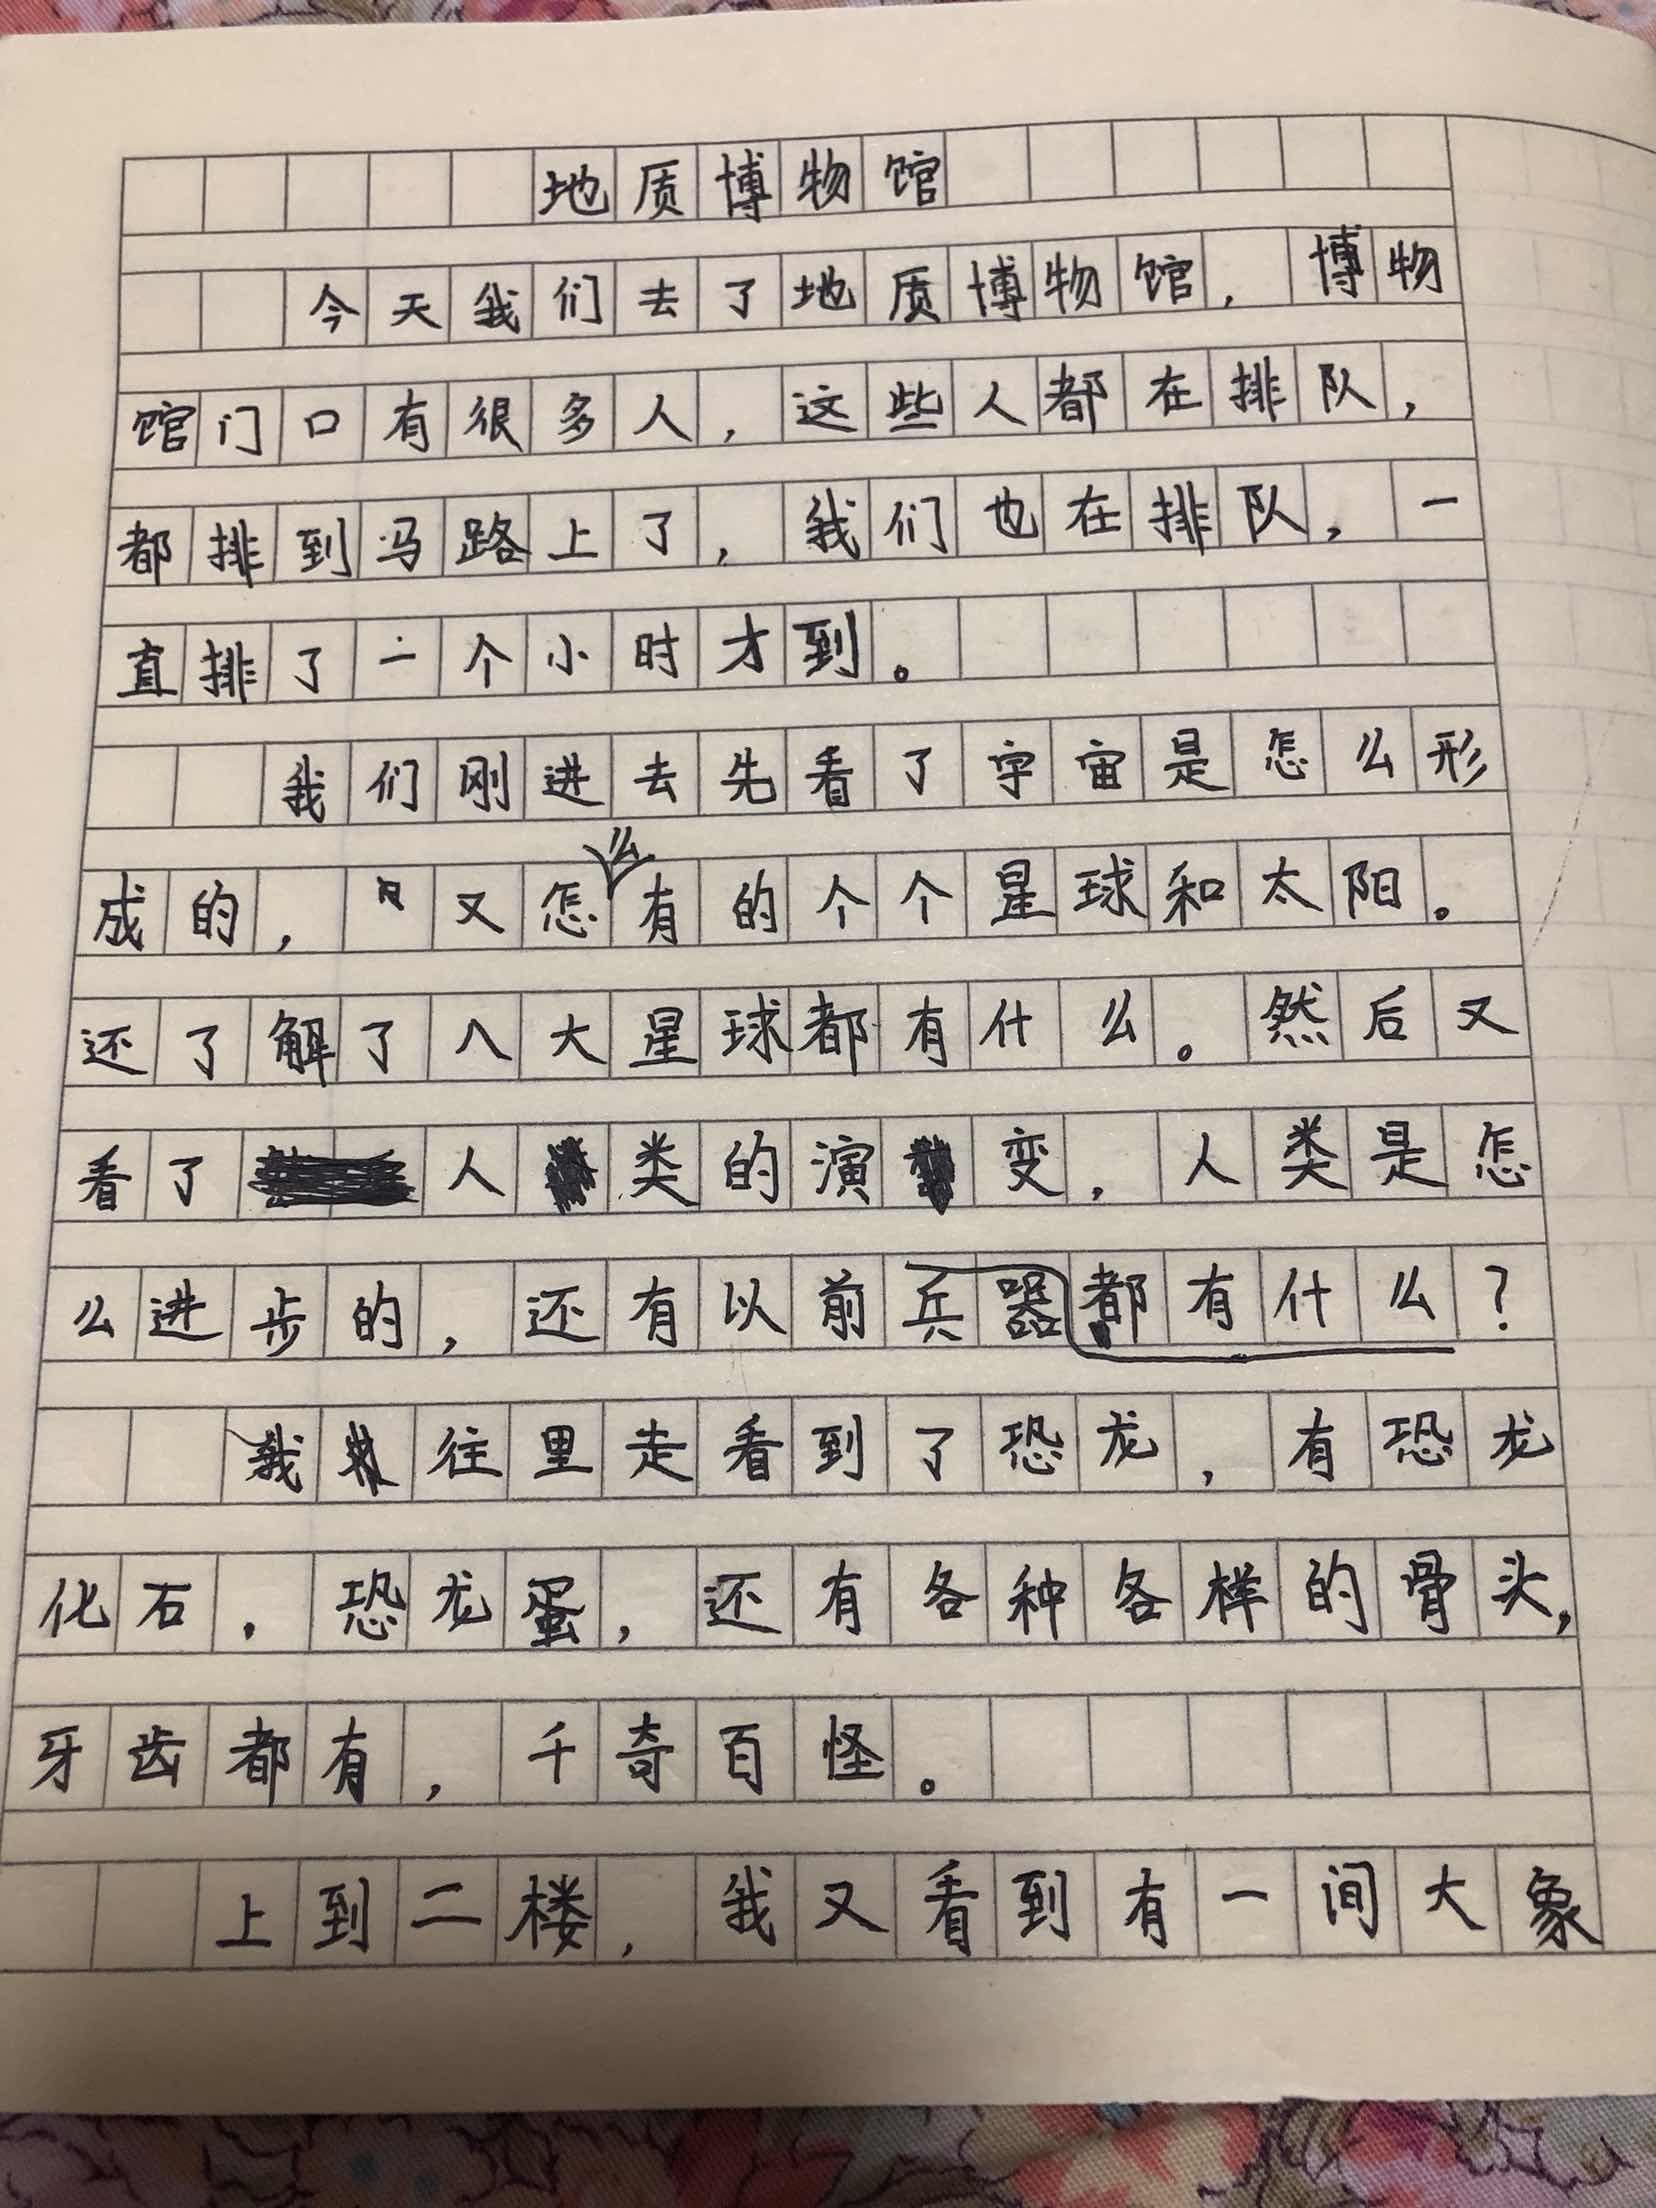 地质博物馆
今天我们去了地质博物馆，博物
馆门口有很多人，这些人都在排队，
都排到马路上了，我们也在排队，一
直排了一个小时才到。
我们刚进去先看了宇宙是怎么形
成的，又怎么有的个个星球和太阳。
还了解了八大星球都有什么。然后又
看了人类的演变，人类是怎
么进步的，还有以前兵器都有什么？
我往里走看到了恐龙，有恐龙
化石，恐龙蛋，还有各种各样的骨头，
牙齿都有，千奇百怪。
上到二楼，我又看到有一间大象